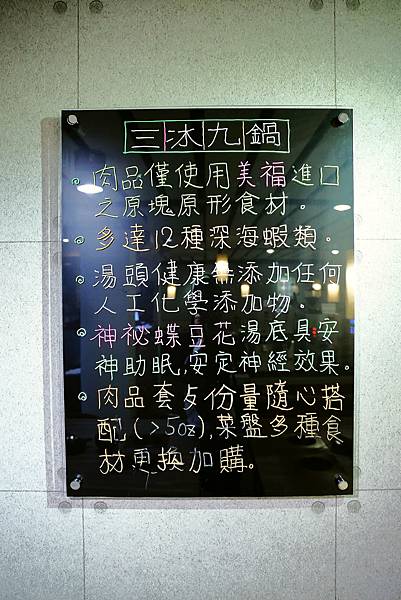 三冰九鍋
肉品僅使用美福進口
之原塊原形食材。
多達12種深海蝦類。
湯頭健康無添加任何
人工化學添加物。
神祕蝶豆花湯底,具安
神助眠,安定神經效果。
肉品套餐份量隨心搭
配(>5oz),菜盤多種食
材更換加購。